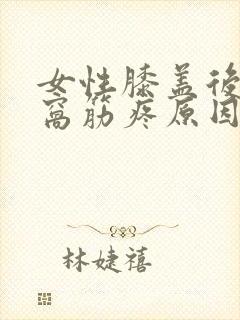 女性膝盖後
窩筋疼原因
林婕禧